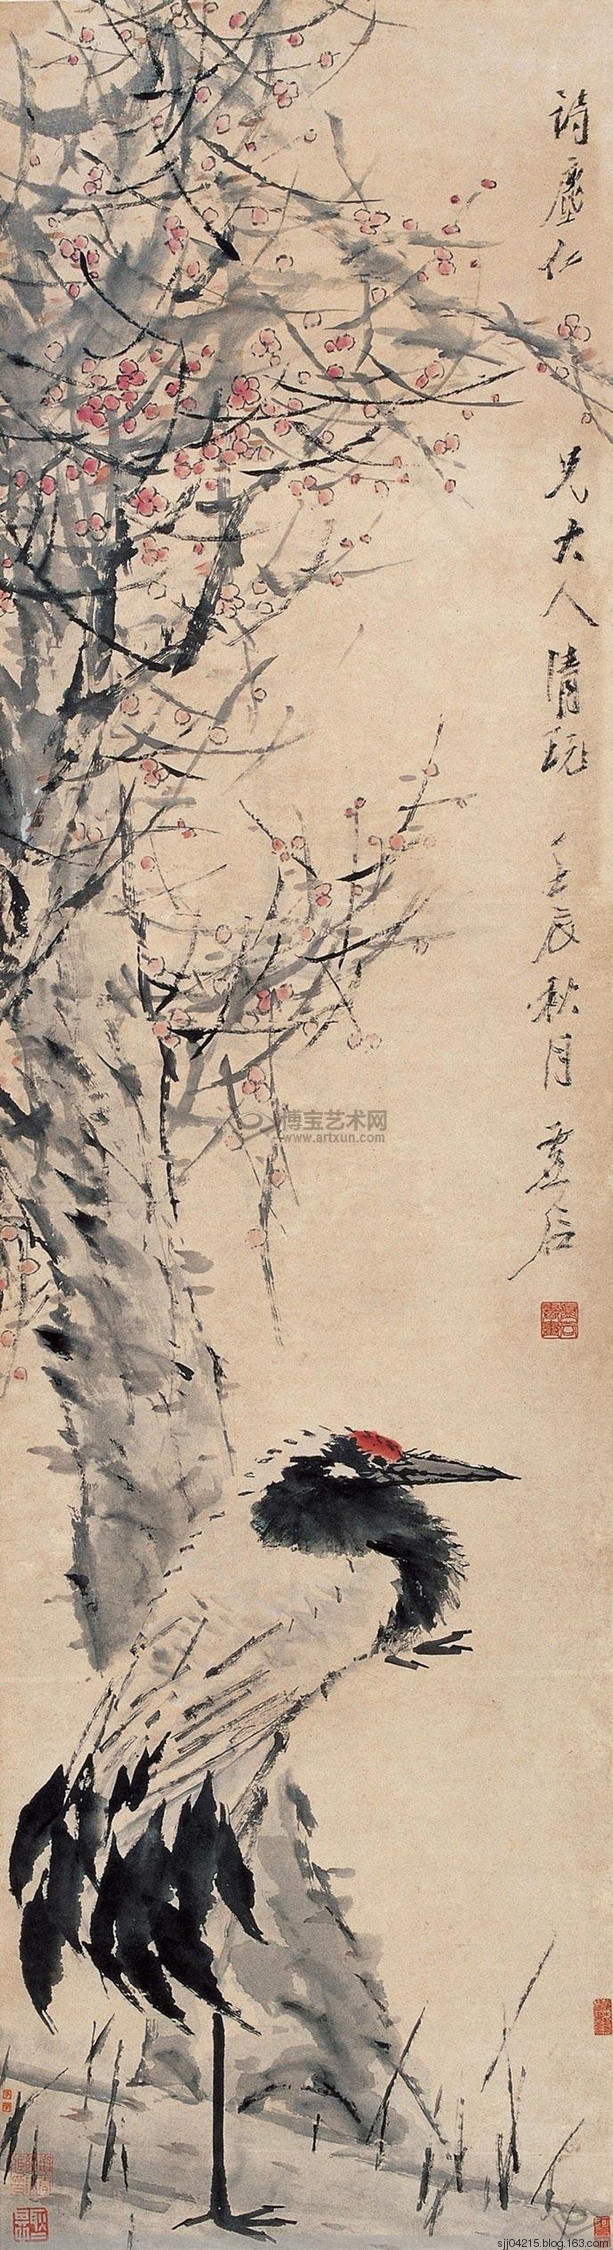 詩塵仁
兄大人清玩
壬辰秋月
虚谷
博宝艺术网
www.artxun.com
sjj04215.blog.163.com